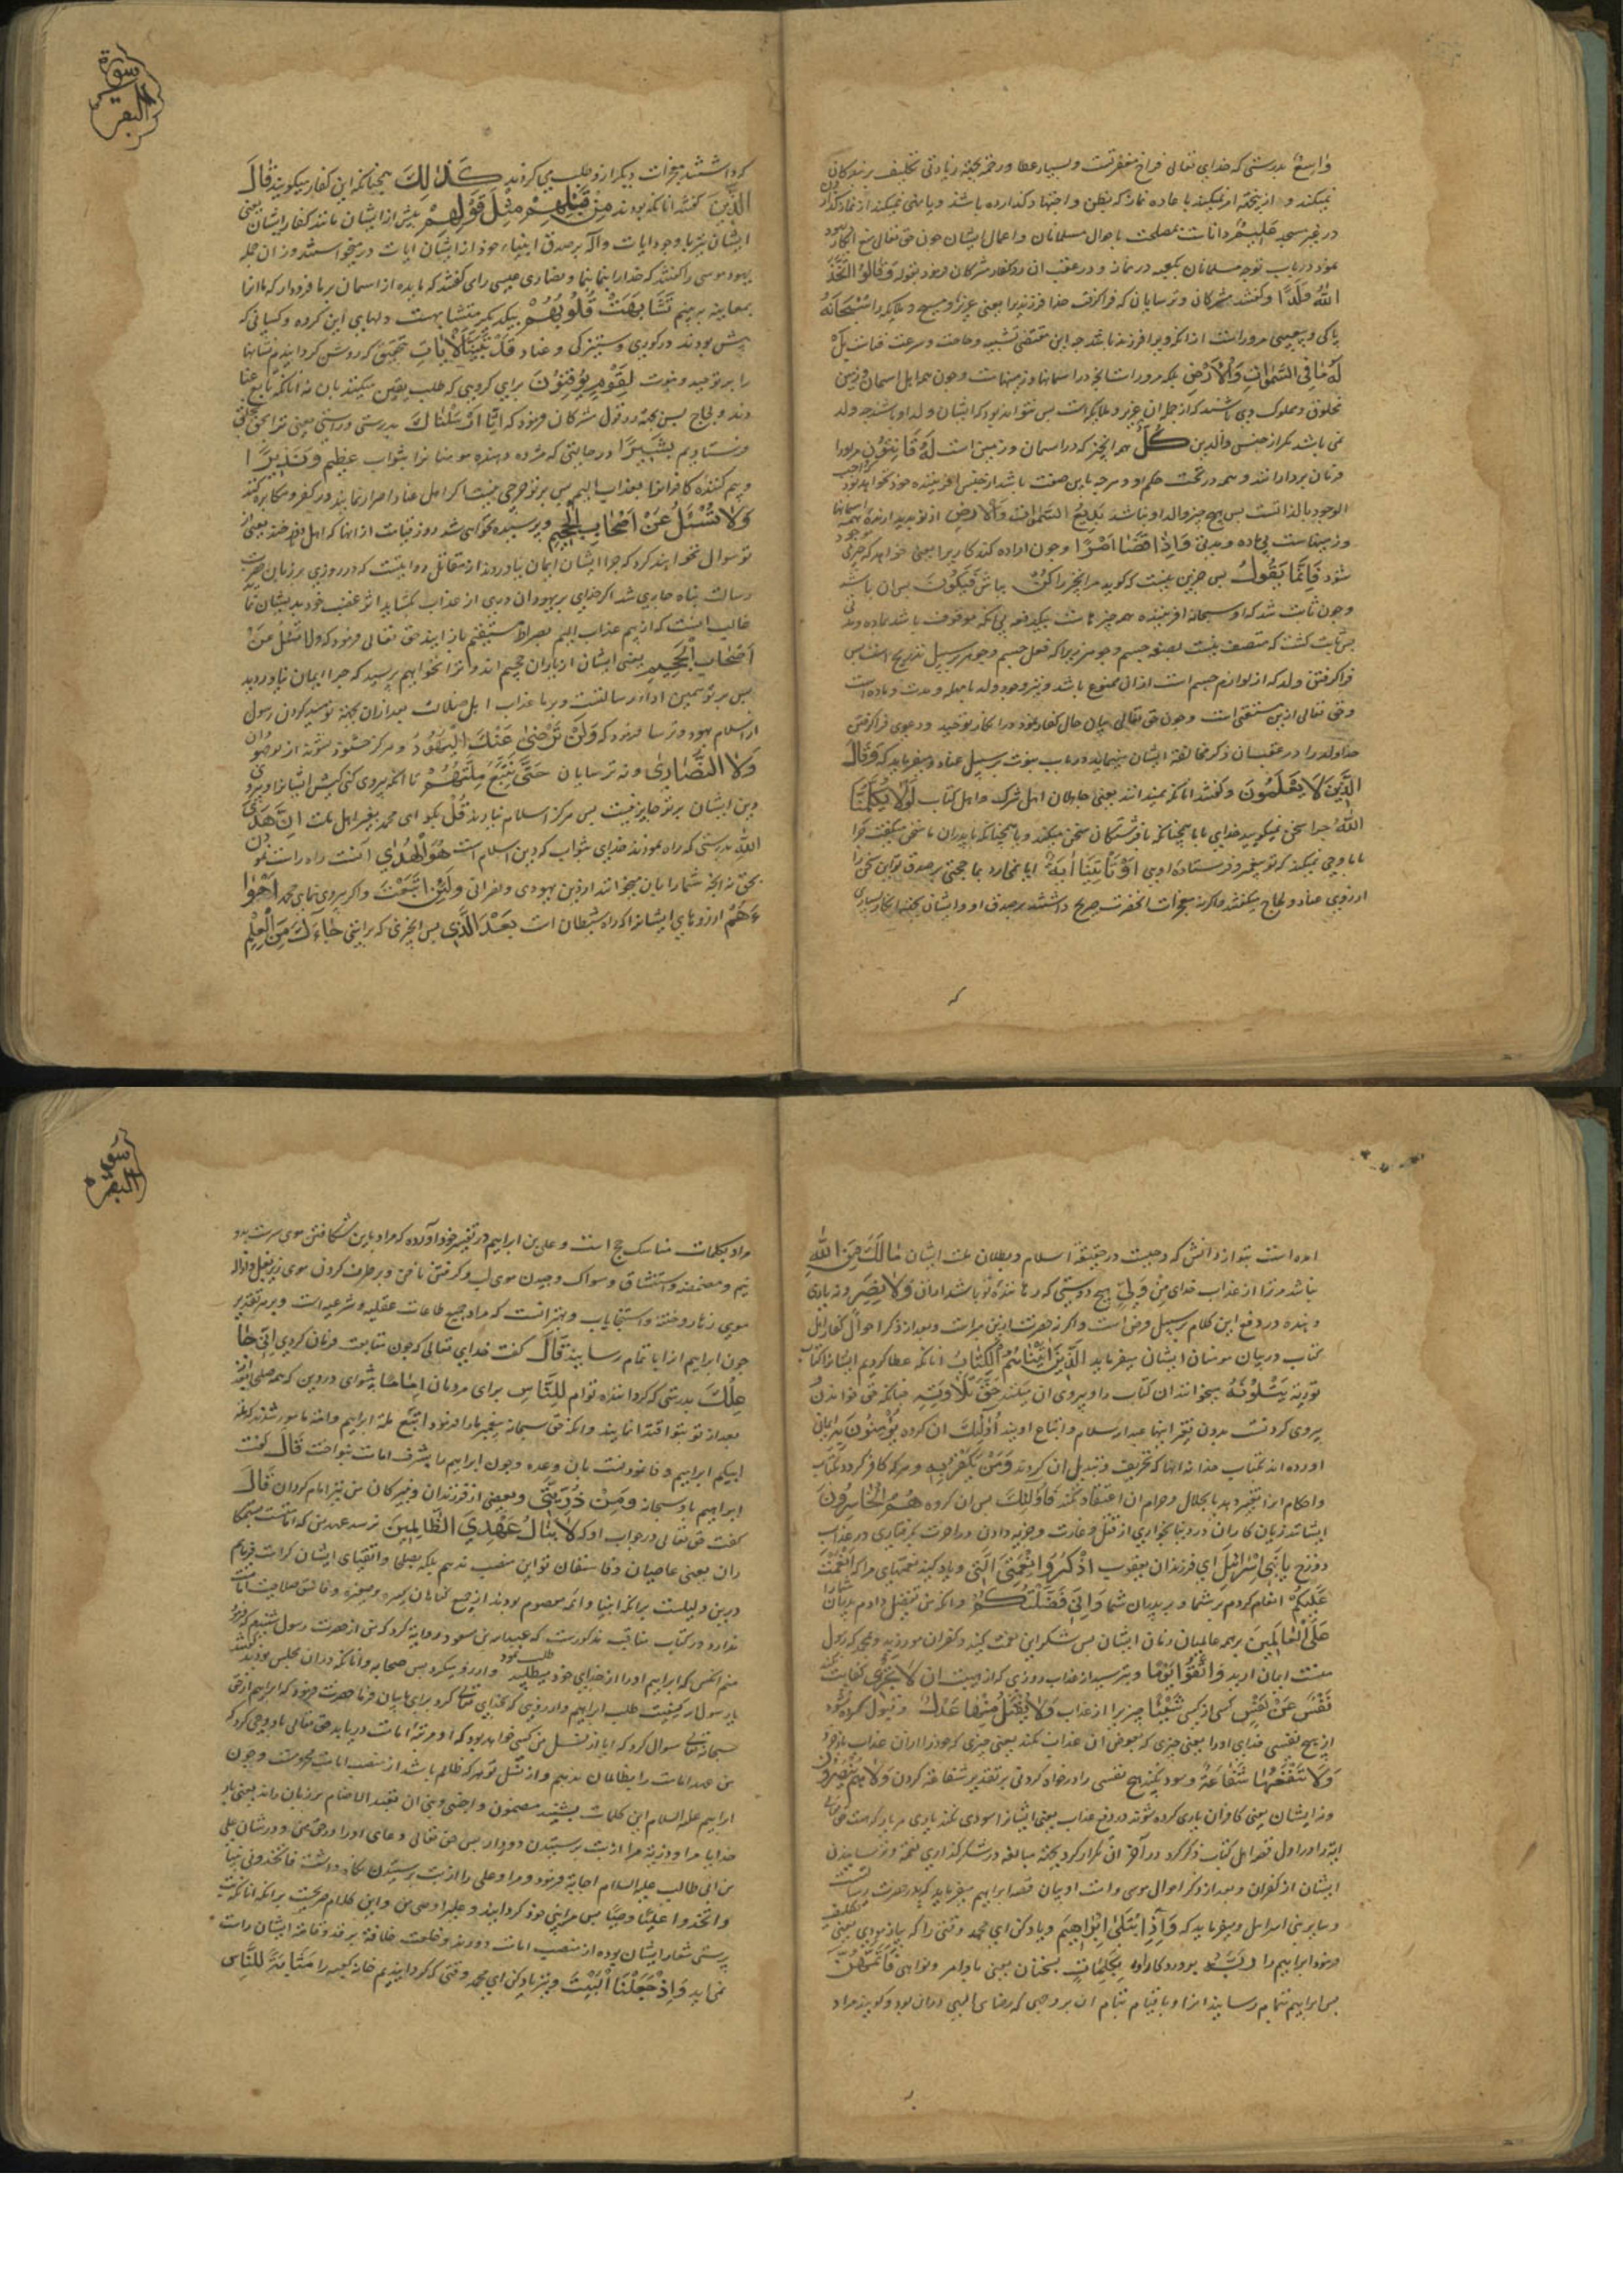 واسع بدرستی که خدای تعالی فراخ مغفرتست و بسیار عطا و رخصت بجهة زیادتی تکلیف بر بندکان
نمیکند و
در غیر مسجد علیم دانات بمصلحت باحوال مسلمانان و اعمال ایشان چون حق تعالی منع
وقالوا اتخذ
الله ولدا وکفتند مشرکان و ترسایان که فرا کرفت خدا فرزندیرا یعنی عزیر و مسیح و ملایکه را سبحانه
پاکی و بی عیبی مر وراست از انکه ویرا فرزند باشد چه این مقتضی تشبیه و حاجت و سرعت فناست بل
له ما فی السموات والارض بلکه مر وراست انچه در اسمانها و زمینهاست و چون همه اهل اسمان و زمین
مخلوق و مملوک وی باشند که از جمله ان عزیر و ملایکه است پس نتواند بود که ایشان ولد او باشند چه ولد
نمی باشد مکر از جنس والدین کل هر انچیز که در اسمان و زمین است له قانتون مر اورا
فرمان بردارانند و همه در تحت حکم او و هر چه باین صفت باشد از جنس افریننده خود نخواهد بود
الوجود بالذاتست پس هیچ چیز والد او نباشد بدیع السموات والارض از نو پدید ارنده همه اسمانها
و زمینهاست بی ماده و مدتی واذا قضی امرا و چون اراده کند کاریرا یعنی خواهد که چیزی موجود
شود فانما یقول پس جزین نیست که کوید مر انچیز را کن بباش فیکون پس ان باشد
و چون ثابت شد که او سبحانه افریننده همه چیزهاست بیکدفعه بی انکه موقوف باشد بماده و مدتی
پس ثابت کشت که متصف نیست بصفة جسم و جوهر زیرا که فعل جسم و جوهر بر سبیل تدریج است پس
فرا کرفتن ولد که از لوازم جسم است از ان ممنوع باشد و نیز وجود ولد بامهله و مدت و ماده است
و حق تعالی ازین مستغنی است و چون حق تعالی بیان حال کفار نمود در انکار توحید و دعوی فرا کرفتن
خدا ولد را در عقب ان ذکر مخالفة ایشان مینماید در باب نبوت بر سبیل عناد و میفرماید که وقال
الذین لا یعلمون وکفتند انانکه نمیدانند یعنی جاهلان اهل شرک و اهل کتاب لولا یکلمنا
الله چرا سخن نمیکوید خدای با ما همچنانکه با فرشتکان سخن میکند و یا همچنانکه با پدران ما سخن میکفت چرا
بما وحی نمیکند که تو پیغمبر و فرستاده اویی او تاتینا ایة ایا نمی ارد بما حجتی بر صدق تو این سخن را
از روی عناد و لجاج میکفتند والا کرنه معجزات انحضرت صریح داشتند بر صدق او و ایشان بجهة انکار بسیاری
که
سورة البقره
کرد اشتند معجزات دیکر ارزو طلب می کردند کذلک همچنانکه این کفار میکویند قال
الذین کفتند انانکه بودند من قبلهم مثل قولهم پیش از ایشان مانند کفتار ایشان یعنی
ایشان نیز با وجود ایات دآله بر صدق انبیاء خود از ایشان ایات در میخواستند و از ان جمله
یهود موسی را کفتند که خدا را بما بنما و نصاری عیسی را می کفتند که مایده از اسمان بر ما فرود ار که ما انرا
بمعاینه به بینیم تشابهت قلوبهم بیکدیکر متشابهست دلهای این کروه و کسانی که
پیش بودند در کوری و ستیزکی و عناد قد بینا الایات بتحقیق که روشن کردانیدیم نشانها
را بر توحید و نبوت لقوم یوقنون برای کروهی که طلب یقین میکنند بان نه انانکه تابع عنا
دند و لجاج پس بجهة رد قول مشرکان فرمود که انا ارسلناک بدرستی و راستی یعنی ترا بحق بخلق
فرستادیم بشیرا در حالتی که مژده دهنده مومنانرا بثواب عظیم ونذیرا
و بیم کننده کافرانرا بعذاب الیم پس بر تو حرجی نیست اکر اهل عناد اصرار نمایند در کفر و مکابره کنند
ولا تسئل عن اصحاب الجحیم و پرسیده نخواهی شد روز قیامت از انها که اهل دوزخند یعنی از
تو سوال نخواهند کرد که چرا ایشان ایمان نیاوردند از مقاتل روایتست که در روزی بر زبان حضرت
رسالت پناه جاری شد اکر خدای بر یهودان دری از عذاب بکشاید اثر غضب خود بدیشان نماید
غالب انست که از بیم عذاب الیم بصراط مستقیم باز ایند حق تعالی فرمود که ولا تسئل عن
اصحاب الجحیم یعنی ایشان از یاران جحیم اند و ترا نخواهیم پرسید که چرا ایمان نیاوردید
پس بر تو همین اداء رسالتست و بر ما عذاب اهل ضلالت بعد ازان بجهة نومید کردن رسول
از اسلام یهود و ترسا فرمود که ولن ترضی عنک الیهود و هرکز خشنود نشوند از تو جهودان
ولا النصاری و نه ترسایان حتی تتبع ملتهم تا انکه پیروی کنی کیش ایشانرا و پیروی
دین ایشان بر تو جایز نیست پس هرکز اسلام نیارند قل بکو ای محمد بغیر اهل ملت ان هدی
الله بدرستی که راه نمودن خدای بثواب که دین اسلام است هو الهدی انست راه راست نمودن
بحق نه انچه شمارا بان میخوانند از دین یهودی و نصرانی ولئن اتبعت و اکر پیروی نمایی محمد اهوا
ءهم ارزوهای ایشانرا که راه شیطان است بعد الذی پس انچیزی که براستی جاءک من العلم
امده است بتو از دانش که وحیست در حقیقة اسلام و بطلان ملت ایشان مالک من الله
نباشد مر ترا از عذاب خدای من ولی هیچ دوستی که رهاننده تو باشد از ان ولا نصیر و نه یاری
دهنده در دفع این کلام بر سبیل فرض است و اکر نه حضرت ازین مبراست و بعد از ذکر احوال کفار اهل
کتاب در بیان مومنان ایشان میفرماید الذین اتیناهم الکتاب انانکه عطا کردیم ایشانرا کتاب
توریة یتلونه میخوانند ان کتاب را و پیروی ان میکنند حق تلاوته چنانکه حق خواندن
پیروی کردنست بدون تغیر اینها عبدالله سلام و اتباع اویند اولئک ان کروه یؤمنون به ایمان
اورده اند بکتاب خدا نه انها که تحریف و تبدیل ان کردند ومن یکفر به و هر که کافر کردد بکتاب
و احکام انرا تغییر دهد یا بحلال و حرام ان اعتقاد نکند فاولئک پس ان کروه هم الخاسرون
ایشانند زیان کاران در دنیا بخواری از قتل و غارت و جزیه دادن و در اخرت بکرفتاری در عذاب
دوزخ یا بنی اسرائیل ای فرزندان یعقوب اذکروا نعمتی التی و یاد کنید نعمتهای مرا که انعمت
علیکم انعام کردم بر شما و بر پدران شما وانی فضلتکم و انکه من تفضیل دادم پدران شمارا
علی العالمین بر همه عالمیان زمان ایشان پس شکر این نعمت کنید و کفران مورزید و بمحمد که رسول
منست ایمان ارید واتقوا یوما و بترسید از عذاب روزی که از هیبت ان لا تجزی کفایت نکند
نفس عن نفس کسی از کسی شیئا چیزیرا از عذاب ولا یقبل منها عدل و قبول کرده نشود
از هیچ نفسی فدای او را یعنی چیزی که بعوض ان عذاب نکنند یعنی چیزی که خود را از ان عذاب باز خرد
ولا تنفعها شفاعة و سود نکند هیچ نفسی را درخواه کردن بر تقدیر شفاعة کردن ولا هم ینصرون
و نه ایشان یعنی کافران یاری کرده شوند در دفع عذاب یعنی ایشانرا سودی نکند یاری هر یار که هست حق تعالی
ایة را در اول قصه اهل کتاب ذکر کرد و در آخر ان تکرار کرد بجهة مبالغه در شکر کذاری نعمة و ترسانیدن
ایشان از کفران و بعد از ذکر احوال موسی و امت او بیان قصه ابراهیم میفرماید که پدر حضرت رسالت
و سایر بنی اسرایل و میفرماید که واذ ابتلی ابراهیم و یاد کن ای محمد وقتی را که بیازمودی یعنی تکلیف
فرمود ابراهیم را ربه پروردکار او بکلمات بسخنان یعنی باوامر و نواهی فاتمهن
پس ابراهیم بتمام رسانید انرا و با قیام بتمام ان بر وجهی که رضای الهی دران بود و کویند مراد
سورة البقره
مراد بکلمات مناسک حج است و علی بن ابراهیم در تفسیر خود اورده که مراد باین شکافتن موی سرست بدو
نیم و مضمضه و استنشاق و مسواک و چیدن موی لب و کرفتن ناخن و بر طرف کردن موی زیر بغل و ازاله
موی زهار و ختنه و استنجا باب و بهتر انست که مراد جمیع طاعات عقلیه و شرعیه است و بر هر تقدیر
چون ابراهیم انرا باتمام رسانید قال کفت خدای تعالی که چون متابعت فرمان کردی انی جا
علک بدرستی که کرداننده توام للناس برای مردمان اماما پیشوای در دین که همه صلحای
بعد از تو بتو اقتدا نمایند و انکه حق سبحانه پیغمبر مارا فرمود اتبع ملة ابراهیم و امة ما مور شدند که ملة
ابیکم ابراهیم وفا نمودنست بان وعده و چون ابراهیم را بشرف امامت بنواخت قال کفت
ابراهیم باو سبحانه ومن ذریتی و بعضی از فرزندان و نبیرکان من نیز امام کردان قال
کفت حق تعالی در جواب او که لا ینال عهدی الظالمین نرسد عهد من که امامتست ستمکا
ران یعنی عاصیان و فاسقان تو این منصب ندهم بلکه بصلحا و اتقیای ایشان کرامت فرمایم
درین دلیلست برانکه انبیا و ائمه معصوم بودند از جمیع کناهان کبیره و صغیره و فاسق صلاحیت امامت
ندارد و در کتاب مناقب مذکورست که عبدالله بن مسعود روایة کرد که من از حضرت رسول شنیدم که فرمود
منم انکس که ابراهیم اورا از خدای خود میطلبید و ارزو میکرد پس صحابه و انانکه دران مجلس بودند کفتند
یا رسول الله کیفیت طلب ابراهیم و ارزویی که بخدای تعالی کرد برای ما بیان فرما حضرت فرمود که ابراهیم از حق
سبحانه تعالی سوال کرد که ایا از نسل من کسی خواهد بود که او مرتبه امامت دریابد حق تعالی باو وحی کرد که
من عهد امامت را بظالمان ندهم و از نسل تو هر که ظالم باشد از منصب امامت محرومست و چون
ابراهیم علیه السلام این کلمات بشنید مضمون واجنبنی وبنی ان نعبد الاصنام بر زبان راند یعنی بار
خدایا مرا و ذریة مرا از بت پرستیدن دور دار پس حق تعالی دعای اورا در حق من و در شان علی
بن ابی طالب علیه السلام اجابة فرمود و مرا و علی را از بت پرستیدن نکاه داشت فاتخذنی نبیا
واتخذ علیا وصیا پس مرا نبی خود کردانید و علیرا وصی من و این کلام صریحست برانکه انانکه بت
پرستی شعار ایشان بوده از منصب امامت دورند و خلعت خلافة بر قد و قامة ایشان راست
نمی اید واذ جعلنا البیت و نیز یاد کن ای محمد وقتی که کردانیدیم خانه کعبه را مثابة للناس